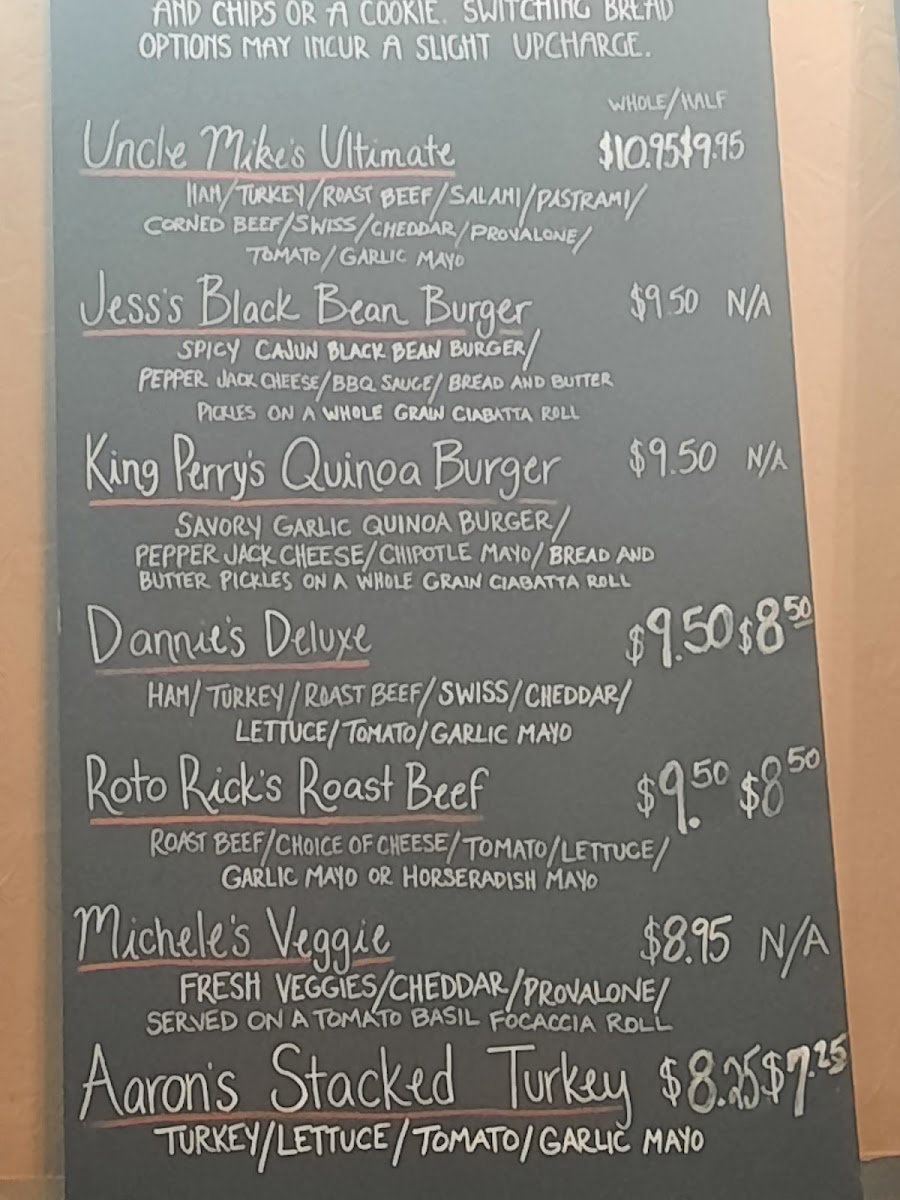 AND CHIPS OR A COOKIE. SWITCHING BREAD
OPTIONS MAY INCUR A SLIGHT UPCHARGE.
WHOLE/HALF
Uncle Mike's Ultimate $10.95 $9.95
HAM/TURKEY/ROAST BEEF/SALAMI/PASTRAMI/
CORNED BEEF/SWISS/CHEDDAR/PROVALONE/
TOMATO/GARLIC MAYO
Jess's Black Bean Burger $9.50 N/A
SPICY CAJUN BLACK BEAN BURGER/
PEPPER JACK CHEESE/BBQ SAUCE/BREAD AND BUTTER
PICKLES ON A WHOLE GRAIN CIABATTA ROLL
King Perry's Quinoa Burger $9.50 N/A
SAVORY GARLIC QUINOA BURGER/
PEPPER JACK CHEESE/CHIPOTLE MAYO/BREAD AND
BUTTER PICKLES ON A WHOLE GRAIN CIABATTA ROLL
Dannie's Deluxe $9.50 $8.50
HAM/TURKEY/ROAST BEEF/SWISS/CHEDDAR/
LETTUCE/TOMATO/GARLIC MAYO
Roto Rick's Roast Beef $9.50 $8.50
ROAST BEEF/CHOICE OF CHEESE/TOMATO/LETTUCE/
GARLIC MAYO OR HORSERADISH MAYO
Michele's Veggie $8.95 N/A
FRESH VEGGIES/CHEDDAR/PROVALONE/
SERVED ON A TOMATO BASIL FOCACCIA ROLL
Aaron's Stacked Turkey $8.25 $7.25
TURKEY/LETTUCE/TOMATO/GARLIC MAYO